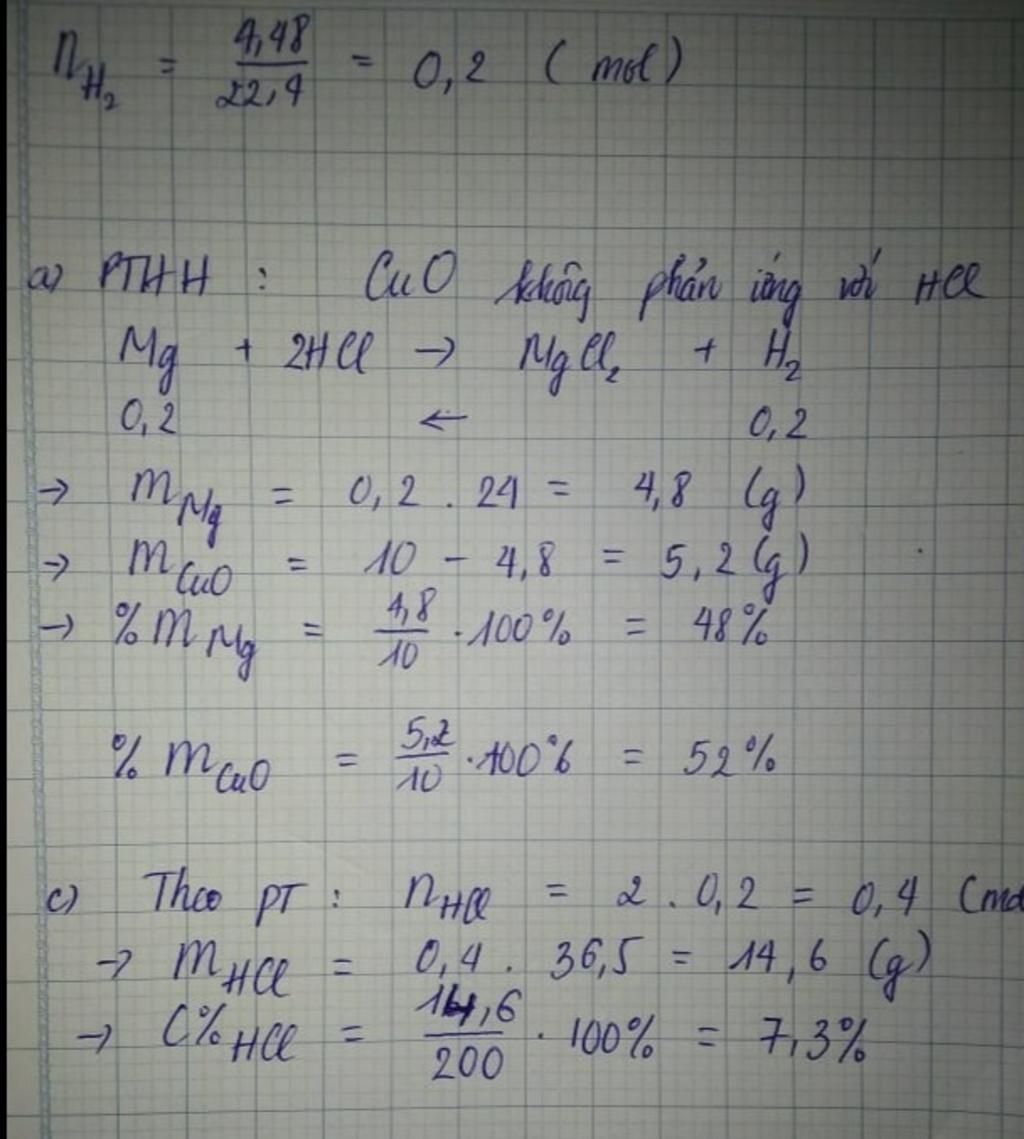 n_H₂ = 4,48/22,4 = 0,2 (mol)
a) PTHH : CuO không phản ứng với HCl
Mg + 2HCl → MgCl₂ + H₂
0,2 ← 0,2
→ m_Mg = 0,2 . 24 = 4,8 (g)
→ m_CuO = 10 - 4,8 = 5,2 (g)
→ % m_Mg = 4,8/10 . 100% = 48%
% m_CuO = 5,2/10 . 100% = 52%
c) Theo PT : n_HCl = 2 . 0,2 = 0,4 (mol
→ m_HCl = 0,4 . 36,5 = 14,6 (g)
→ C%_HCl = 14,6/200 . 100% = 7,3%